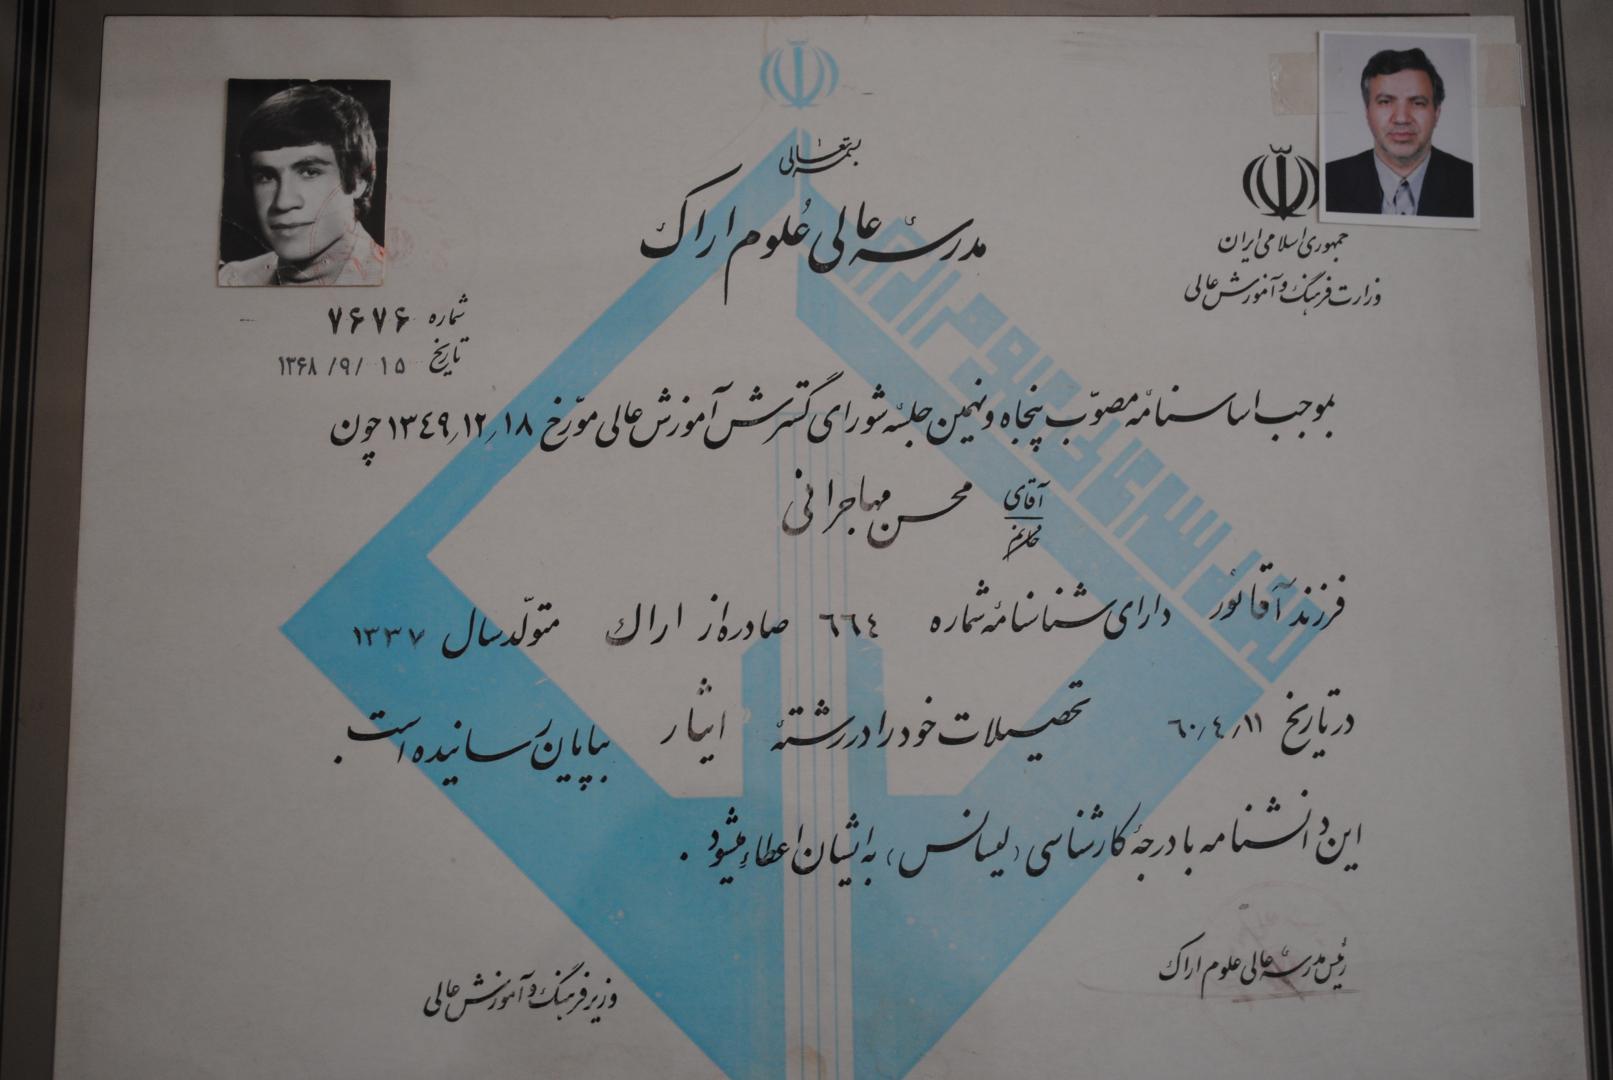 بسمه تعالی
مدرسه عالی علوم اراک
جمهوری اسلامی ایران
وزارت فرهنگ و آموزش عالی
شماره ۷۶۷۶
تاریخ ۱۵ /۹/ ۱۳۶۸
بموجب اساسنامه مصوّب پنجاه و نهمین جلسه شورای گسترش آموزش عالی مورّخ ۱۸ر۱۲ر۱۳۴۹ چون
آقای محسن مهاجرانی
خانم
فرزند آقانور دارای شناسنامه شماره ۶۶۴ صادره از اراک متولّد سال ۱۳۳۷
در تاریخ ۱۱ر۴ر۶۰ تحصیلات خود را در رشتهٔ ایثار بپایان رسانیده است.
این دانشنامه با درجهٔ کارشناسی (لیسانس) به ایشان اعطاء میشود.
رئیس مدرسه عالی علوم اراک
وزیر فرهنگ و آموزش عالی
مدرسه عالی علوم اراک